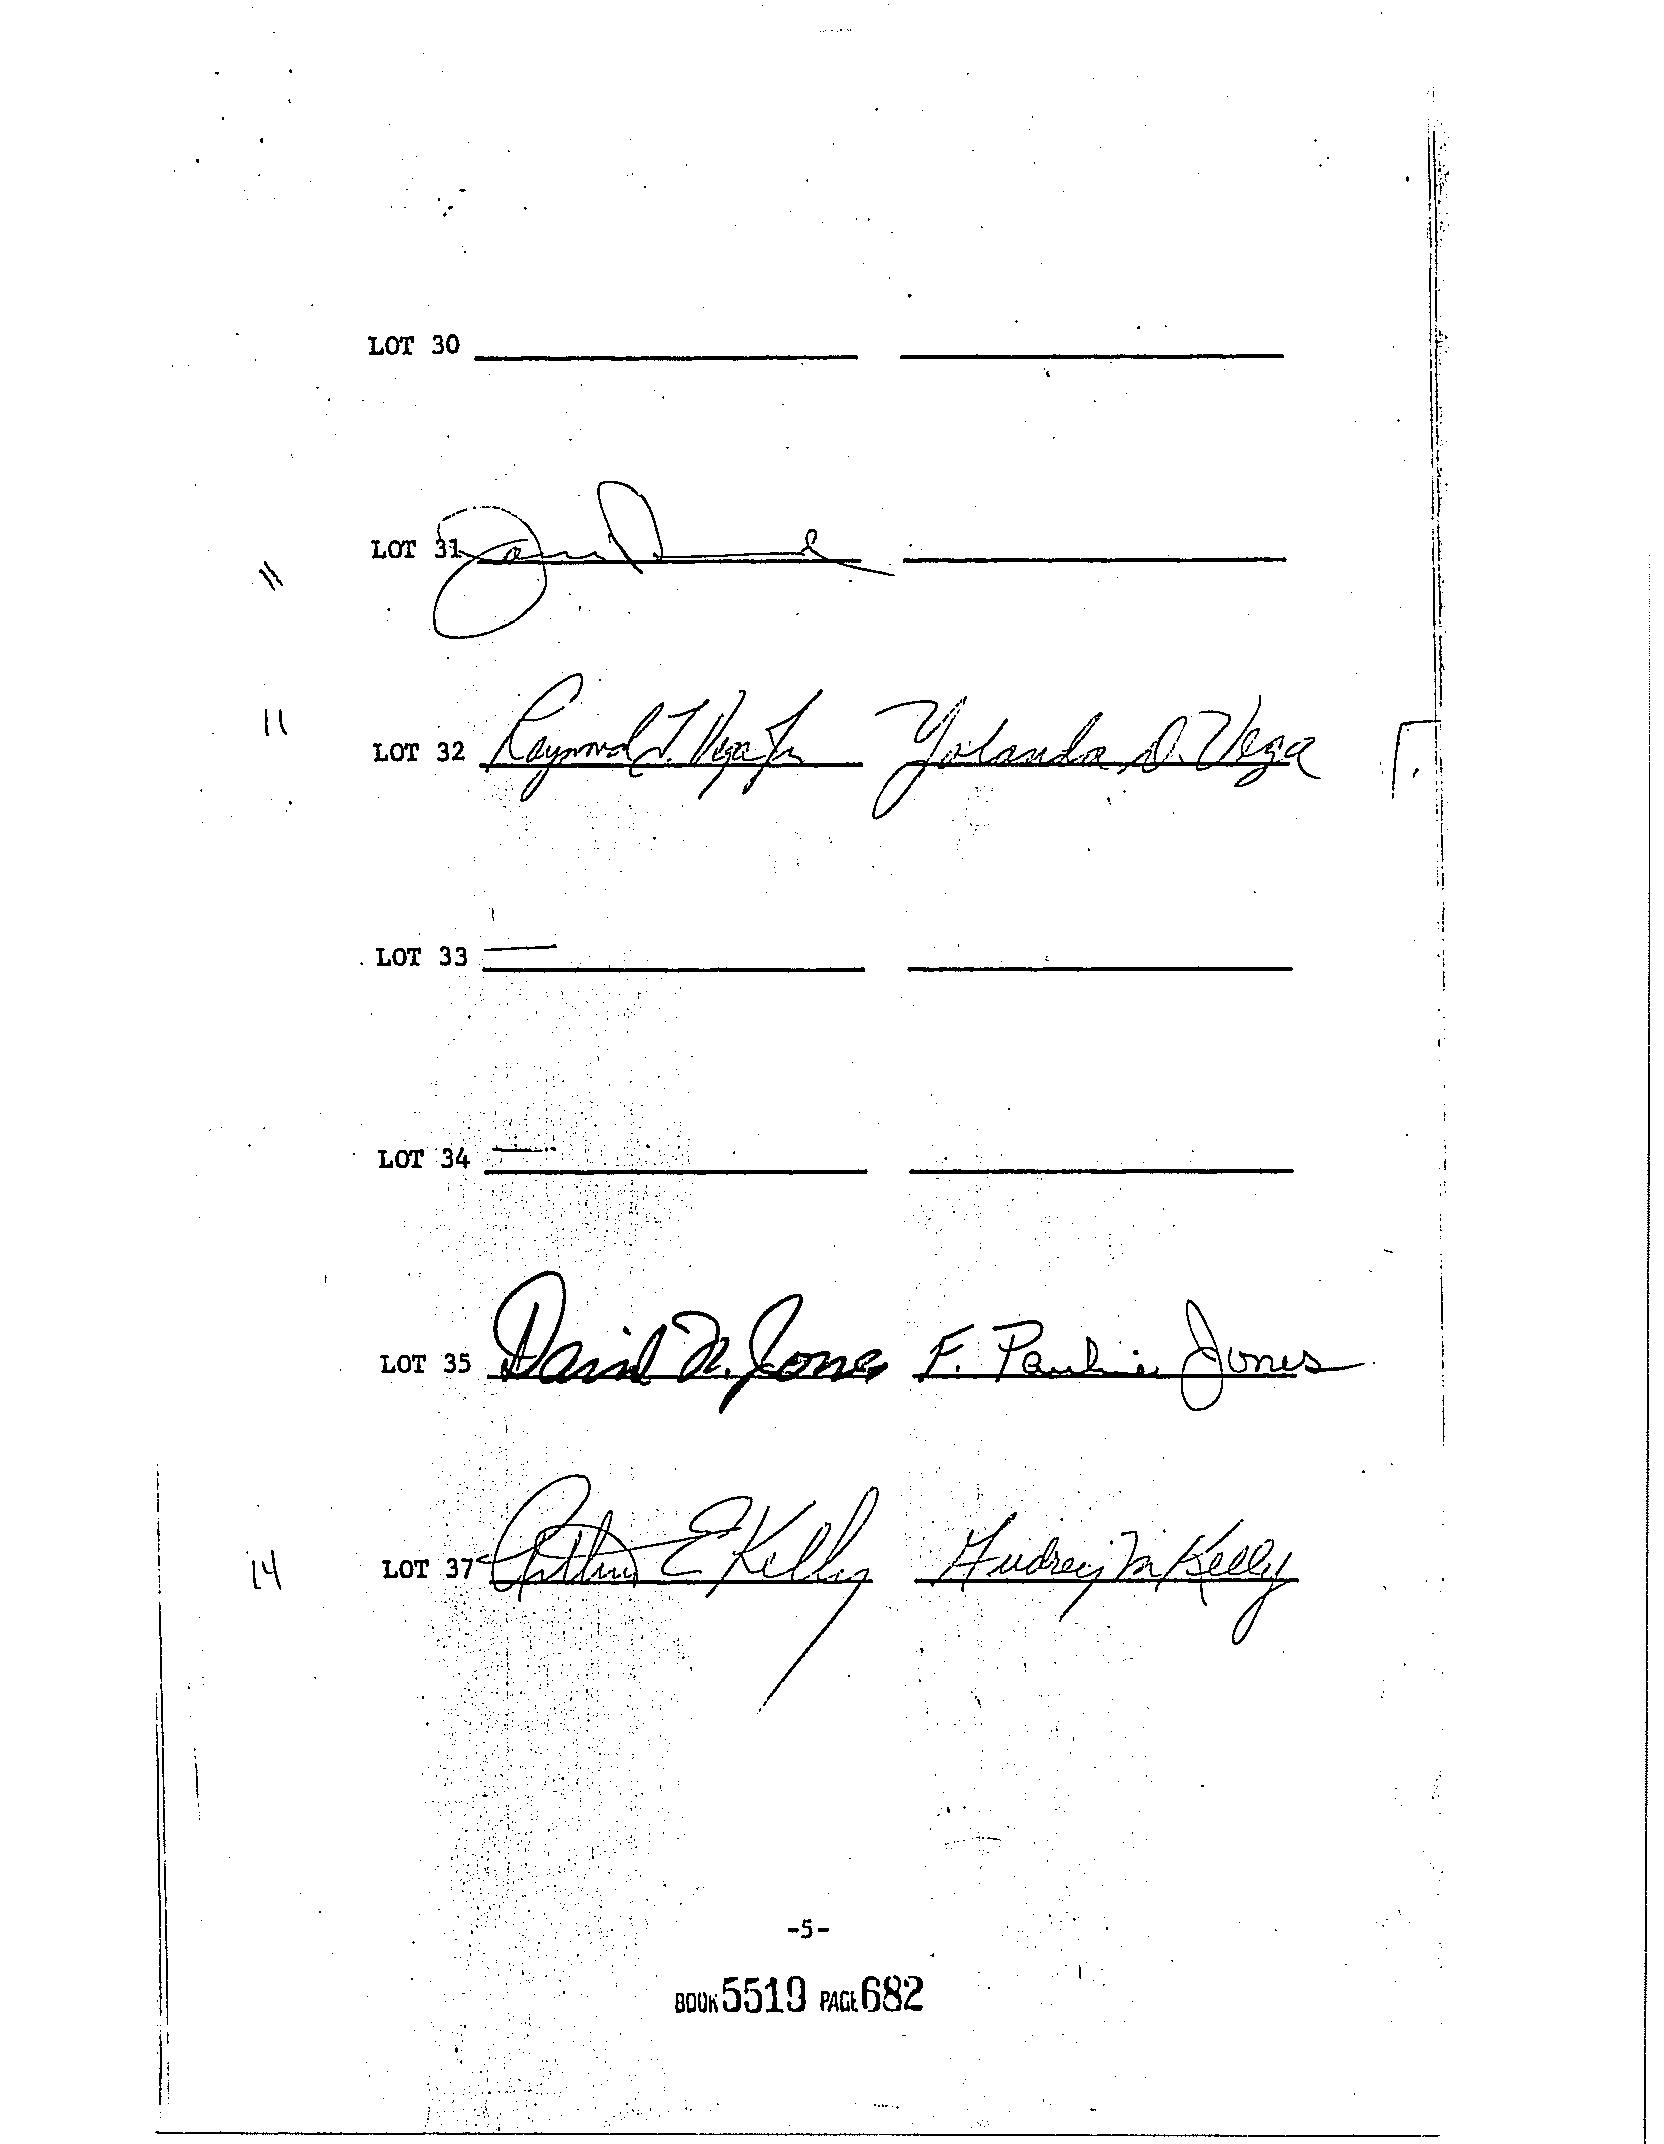 LOT 30
LOT 31
11
11
LOT 32 Raymond J. Vega Jr Yolanda D. Vega
LOT 33
LOT 34
LOT 35 David N. Jones F. Pauline Jones
14
LOT 37 Arthur E Kelly Audrey M Kelly
-5-
BOOK 5519 PAGE 682